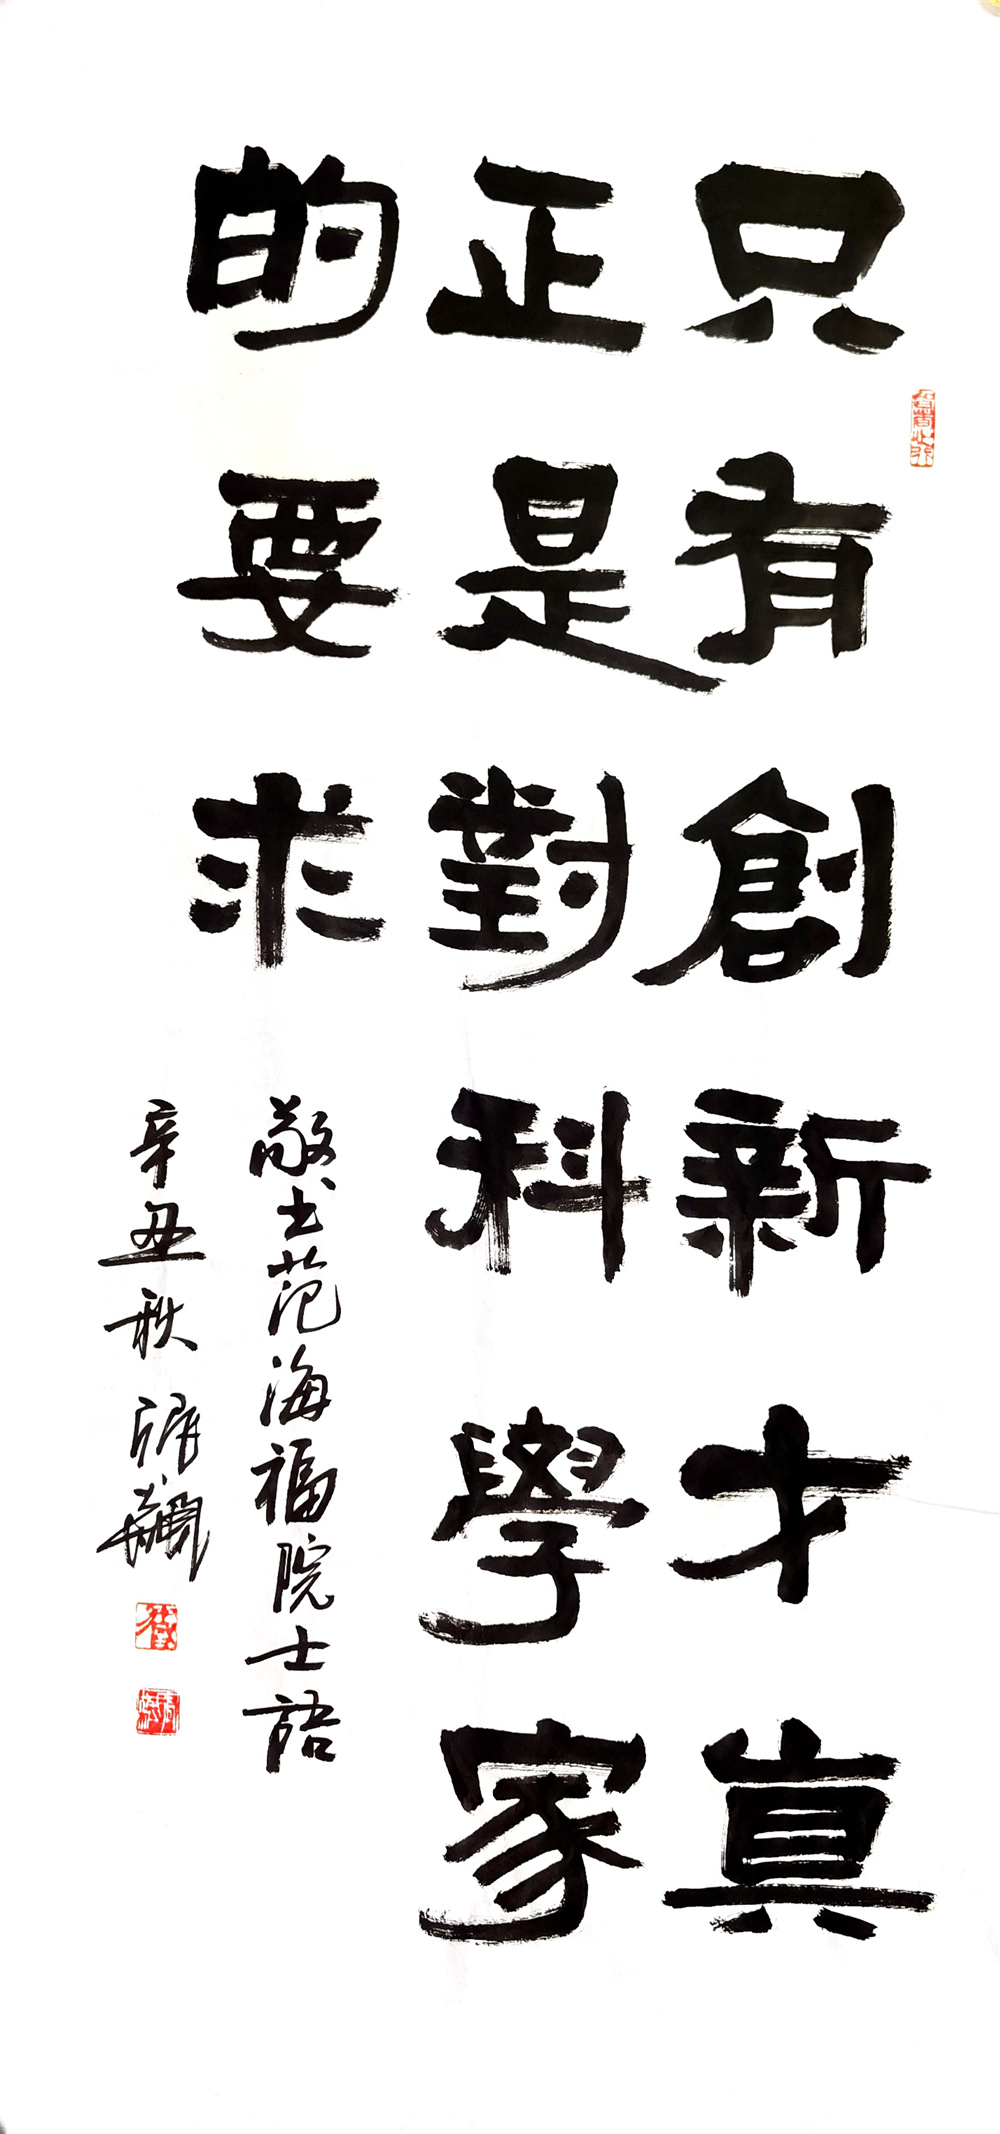 只有創新才真
正是對科學家
的要求
敬书范海福院士語
辛丑秋